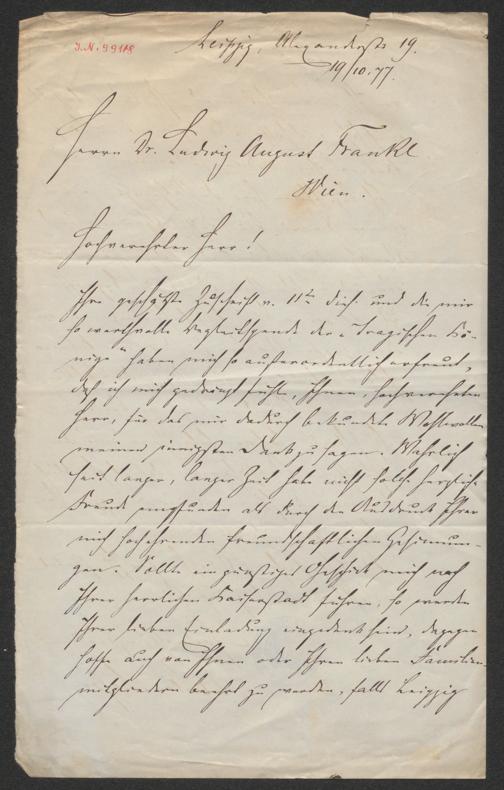 J.N. 99118
Leipzig, Alexanderstr. 19.
19/10.77.
Herrn Dr. Ludwig August Frankl
Wien.
Hochverehrter Herr!
Ihre geschätzte Zuschrift v. 11t dies. und die mir
so werthvolle Beglückspende der „Tragischen Kö-
nige" haben mich so außerordentlich erfreut,
daß ich mich gedrängt fühle, Ihnen, hochverehrter
Herr, für das mir dadurch bekundete Wohlwollen
meinen innigsten Dank zu sagen. Wahrlich
seit langer, langer Zeit habe nicht solche herzliche
Freude empfunden als durch den Ausdruck Ihrer
mich hochehrenden freundschaftlichen Gesinnun-
gen. Sollte ein günstiges Geschick mich nach
Ihrer herrlichen Kaiserstadt führen, so werde
Ihrer lieben Einladung eingedenk sein, dagegen
hoffe auch von Ihnen oder Ihren lieben Familien-
mitgliedern beehrt zu werden, falls Leipzig